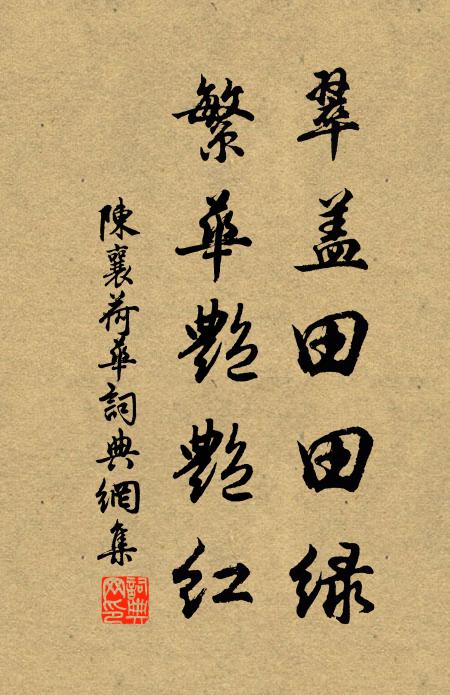 翠盖田田绿
繁华艷艷红
陳襄荷华詞典網集
詞典网印